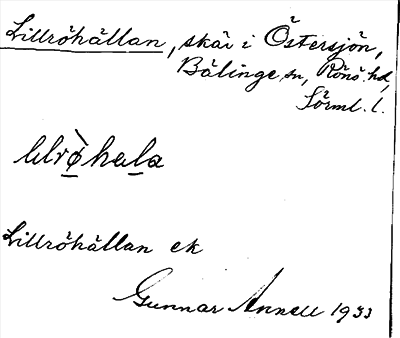 Lillröhällan, skär i Östersjön,
Bälinge sn, Rönö hd,
Sörml. l.
Lillröhällan ek
Gunnar Annell 1933